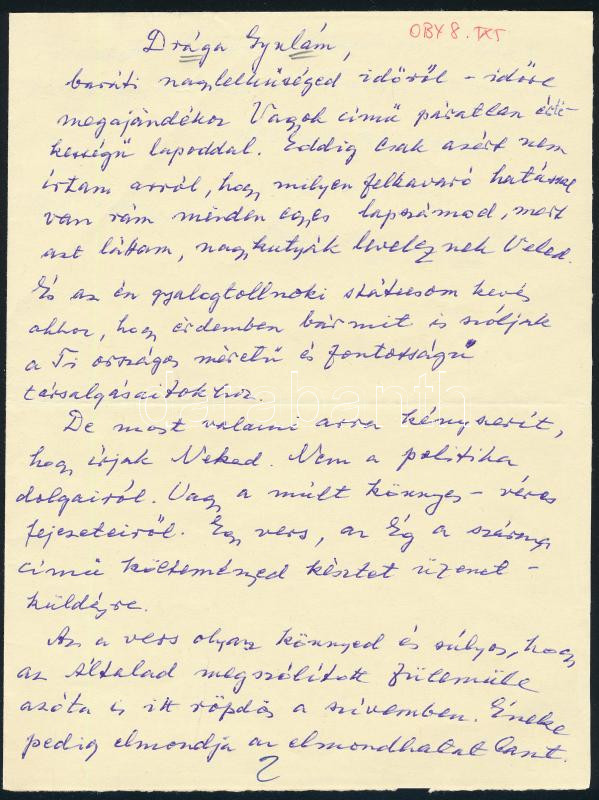 OBY 8. TXT
Drága Gyulám,
baráti nagylelkűséged időről - időre
megajándékoz Vagyok című páratlan érté-
kességű lapoddal. Eddig csak azért nem
írtam arról, hogy milyen felkavaró hatással
van rám minden egyes lapszámod, mert
azt láttam, nagykutyák leveleznek Veled.
És az én gyalogtollnoki státusom kevés
ahhoz, hogy érdemben bármit is szóljak
a Ti országos méretű és fontosságú
társalgásaitokhoz.
De most valami arra kényszerít,
hogy írjak Neked. Nem a politika
dolgairól. Vagy a múlt könnyes - véres
fejezeteiről. Egy vers, az Ég a szárnya
című költeményed késztet üzenet -
küldésre.
Az a vers olyan könnyed és súlyos, hogy
az Általad megszólított fülemüle
azóta is itt röpdös a szívemben. Éneke
pedig elmondja az elmondhatatlant.
2
darabanth